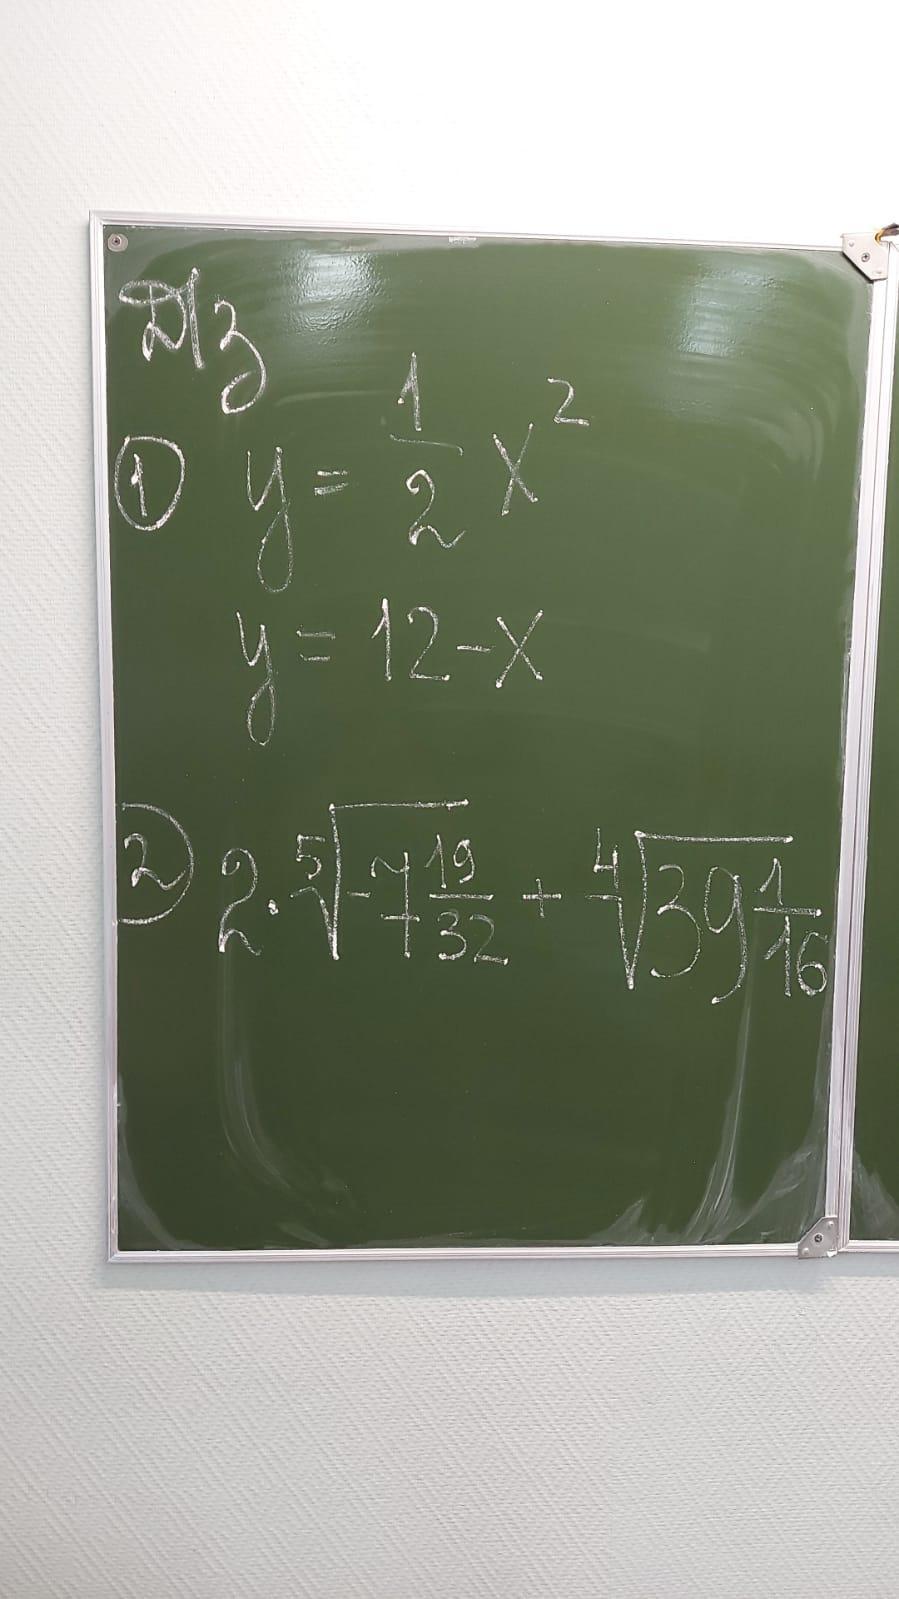 Д/з
① y = 1/2 x²
y = 12 - x
② 2 · ⁵√(-7 19/32) + ⁴√(39 1/16)